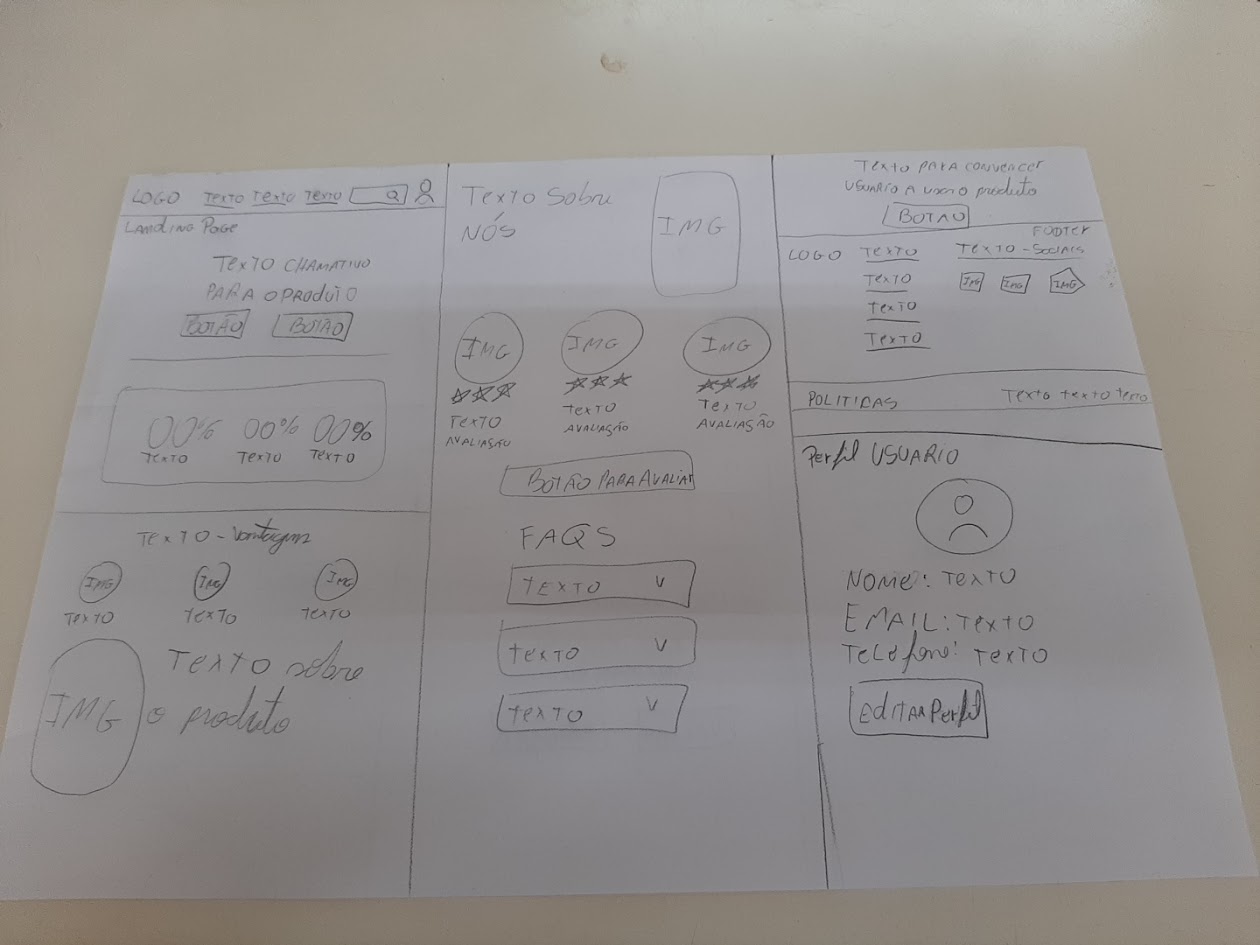 LOGO TEXTO TEXTO TEXTO
LANDING PAGE
TEXTO CHAMATIVO
PARA O PRODUTO
BOTÃO BOTÃO
00% 00% 00%
TEXTO TEXTO TEXTO
TEXTO - Vantagem
IMG IMG IMG
TEXTO TEXTO TEXTO
IMG
TEXTO sobre
o produto
Texto Sobre
NÓS
IMG
IMG IMG IMG
TEXTO TEXTO TEXTO
AVALIAÇÃO AVALIAÇÃO AVALIAÇÃO
BOTÃO PARA AVALIAR
FAQS
TEXTO V
TEXTO V
TEXTO V
Texto PARA convencer
USUARIO A USAR O produto
BOTAO
FOOTER
LOGO TEXTO TEXTO - SOCIAIS
TEXTO IMG IMG IMG
TEXTO
TEXTO
POLITICAS Texto texto texto
Perfil USUARIO
NOME: TEXTO
EMAIL: TEXTO
Telefone: TEXTO
EDITAR Perfil